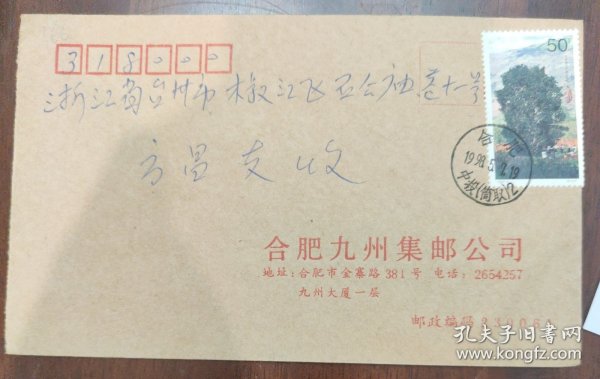 318000
50
浙江省台州市椒江飞云公袖巷十一号
方昌支收
合肥
1998.5.2.19
中投(筒取)2
合肥九州集邮公司
地址:合肥市金寨路381号 电话:2654257
九州大厦一层
邮政编码 230061
孔夫子旧书网
www.kongfz.com